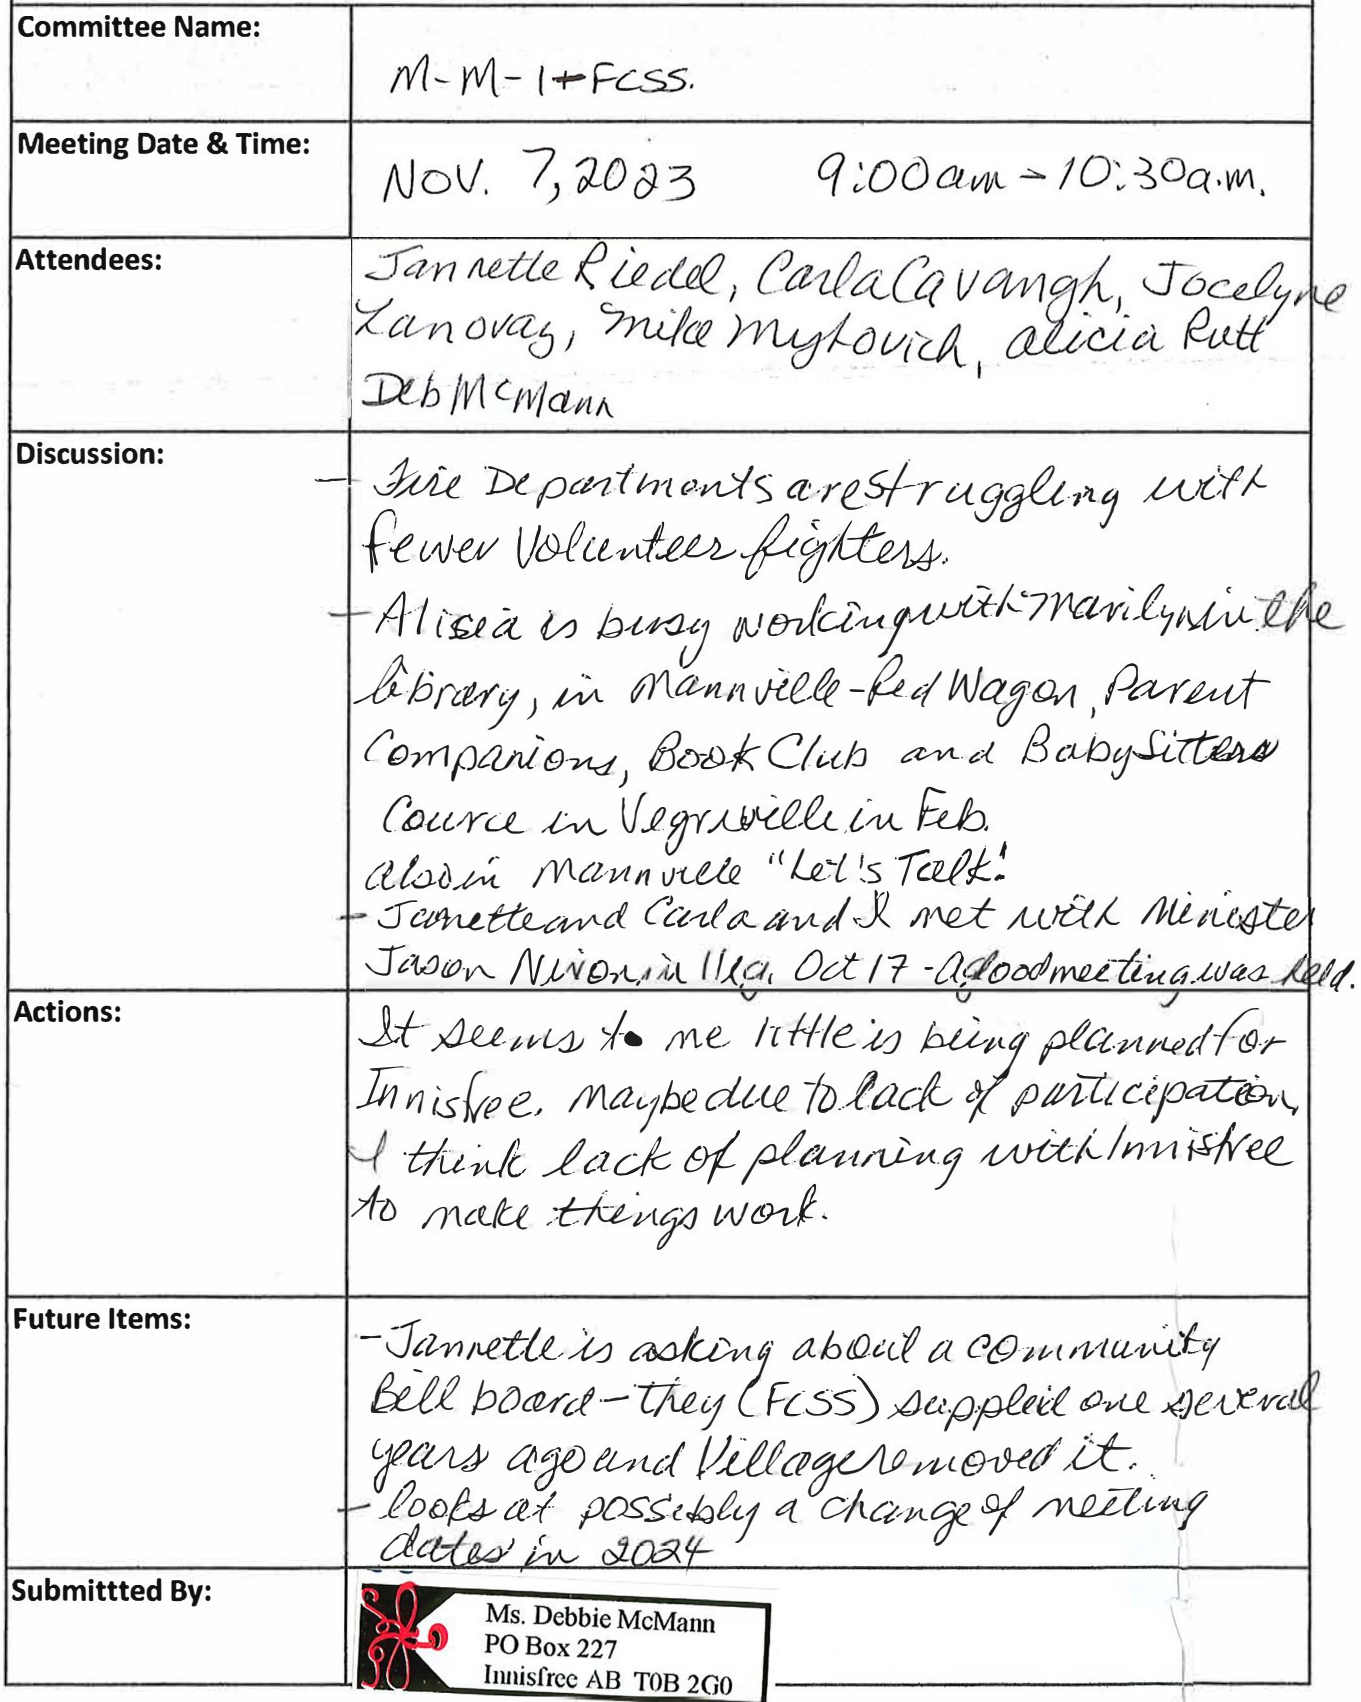 Committee Name:
M-M-I + FCSS.
Meeting Date & Time:
NOV. 7, 2023 9:00am - 10:30a.m.
Attendees:
Jannette Riedel, Carla Cavangh, Jocelyne
Lanovaz, Mike Mytovich, Alicia Rutt
Deb McMann
Discussion:
- Fire Departments are struggling with
fewer Volunteer fighters.
- Alisia is busy working with Marilyn in the
library, in Mannville - Red Wagon, Parent
Companions, Book Club and Babysitters
Cource in Vegreville in Feb.
also in Mannville "Let's Talk".
- Janette and Carla and I met with Minister
Jason Nixon in Veg. Oct 17 - A good meeting was held.
Actions:
It seems to me little is being planned for
Innisfree. Maybe due to lack of participation.
I think lack of planning with Innisfree
to make things work.
Future Items:
- Jannette is asking about a community
Bill board - they (FCSS) supplied one several
years ago and Village removed it.
- looks at possibly a change of meeting
dates in 2024
Submittted By:
Ms. Debbie McMann
PO Box 227
Innisfree AB T0B 2G0